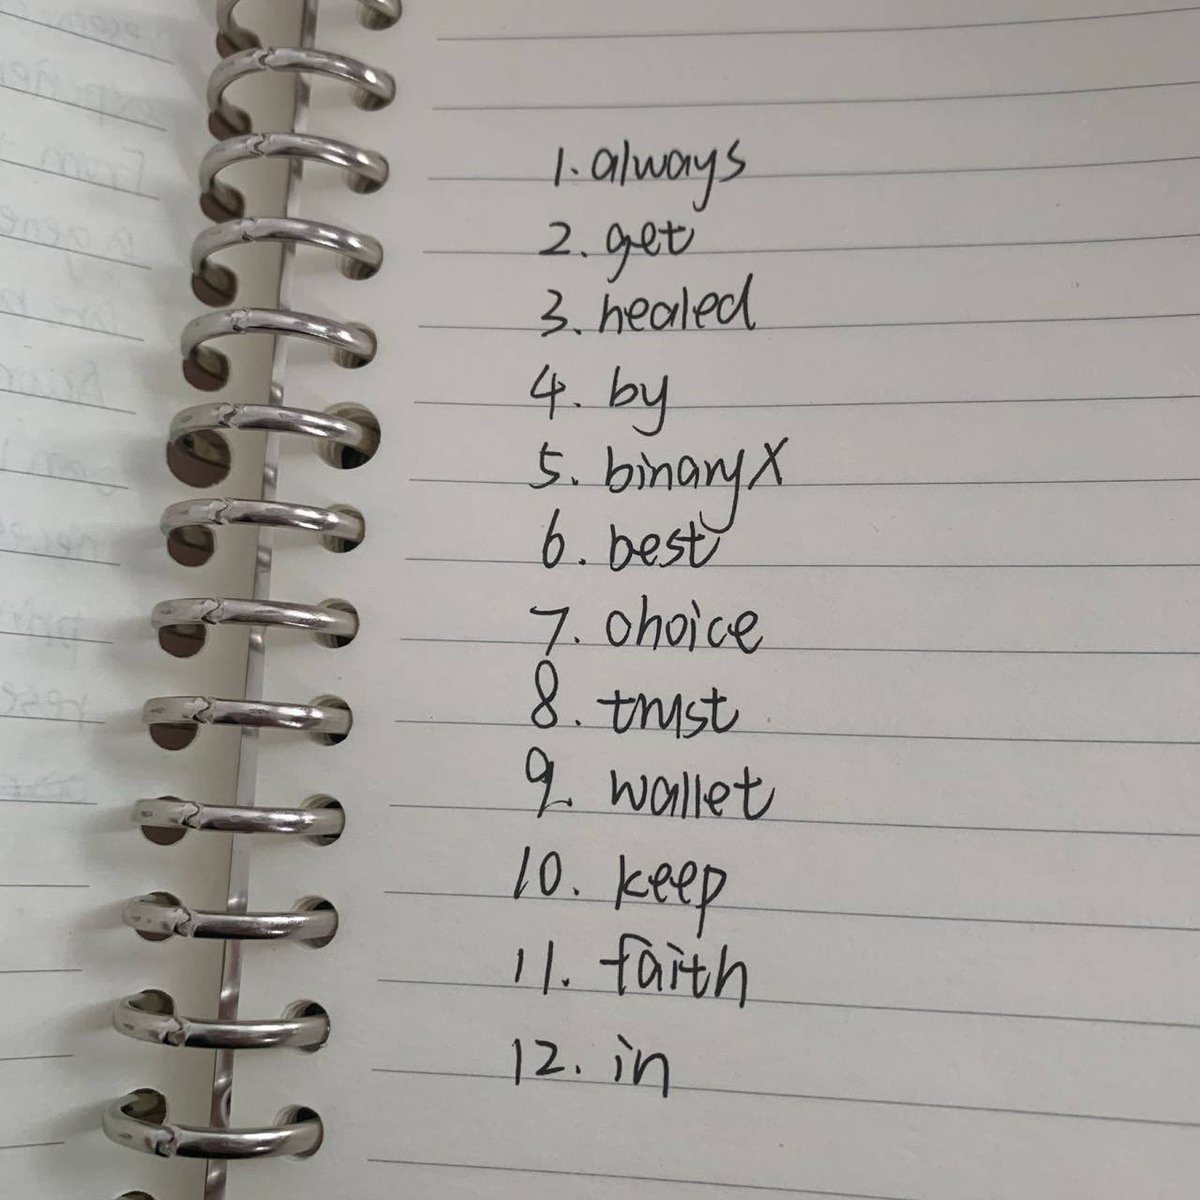 1. always
2. get
3. healed
4. by
5. binaryX
6. best
7. choice
8. trust
9. wallet
10. keep
11. faith
12. in